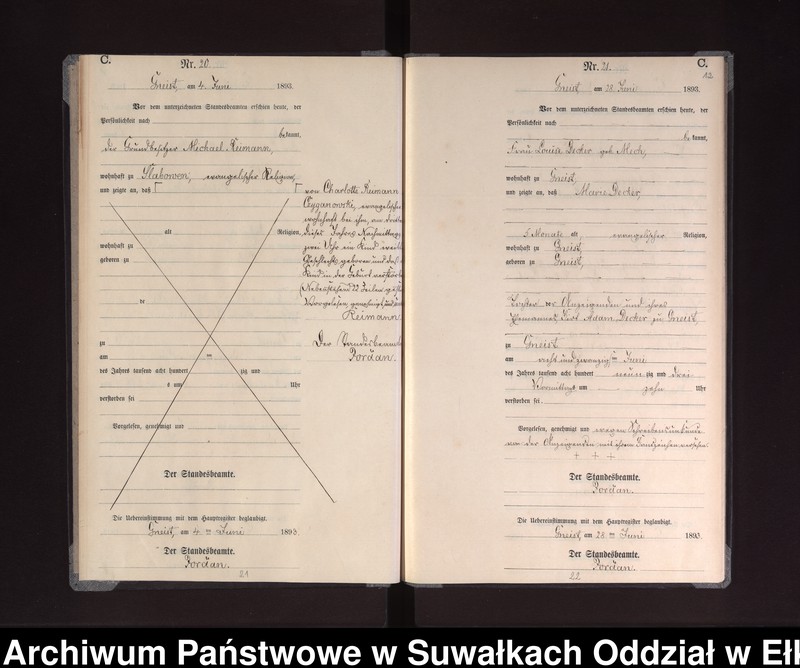 C.
Nr. 20
Gneist, am 4. Juni 1893.
Vor dem unterzeichneten Standesbeamten erschien heute, der
Persönlichkeit nach
bekannt,
der Grundbesitzer Michael Reimann,
wohnhaft zu Slabowen, evangelischer Religion,
und zeigte an, daß
von Charlotte Reimann
Cyganowski, evangelischer
wohnhaft bei ihm, am
dieses Jahres Nachmittags
zwei Uhr ein Kind
Geschlechts geboren und das
Kind in der Geburt verstorben
Vorgelesen, genehmigt und
Reimann.
Der Standesbeamte
Jordan.
alt Religion,
wohnhaft zu
geboren zu
de
zu
am ten
des Jahres tausend acht hundert zig und
s um Uhr
verstorben sei
Vorgelesen, genehmigt und
Der Standesbeamte.
Die Uebereinstimmung mit dem Hauptregister beglaubigt.
Gneist, am 4. ten Juni 1893
Der Standesbeamte.
Jordan.
21
C.
Nr. 21.
12
Gneist am 28. Juni 1893.
Vor dem unterzeichneten Standesbeamten erschien heute, der
Persönlichkeit nach
bekannt,
Frau Louise Decker geb. Mech,
wohnhaft zu Gneist,
und zeigte an, daß Marie Decker,
5 Monate alt evangelischer Religion,
wohnhaft zu Gneist,
geboren zu Gneist,
Tochter der Anzeigenden und ihres
Ehemannes Adam Decker zu Gneist,
zu Gneist
am acht und zwanzigsten Juni
des Jahres tausend acht hundert neun zig und drei
Vormittags um zehn Uhr
verstorben sei.
Vorgelesen, genehmigt und wegen Schreibensunkunde
von der Anzeigenden mit ihrem Handzeichen versehen.
+ + +
Der Standesbeamte.
Jordan.
Die Uebereinstimmung mit dem Hauptregister beglaubigt.
Gneist, am 28. ten Juni 1893.
Der Standesbeamte.
Jordan.
22
Archiwum Państwowe w Suwałkach Oddział w Ełk